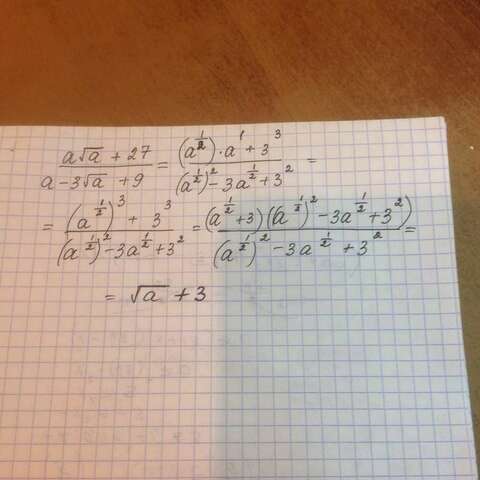 (a√a + 27)/(a - 3√a + 9) = ((a^(1/2))·a^1 + 3^3)/((a^(1/2))^2 - 3a^(1/2) + 3^2) =
= ((a^(1/2))^3 + 3^3)/((a^(1/2))^2 - 3a^(1/2) + 3^2) = ((a^(1/2) + 3)((a^(1/2))^2 - 3a^(1/2) + 3^2))/((a^(1/2))^2 - 3a^(1/2) + 3^2) =
= √a + 3